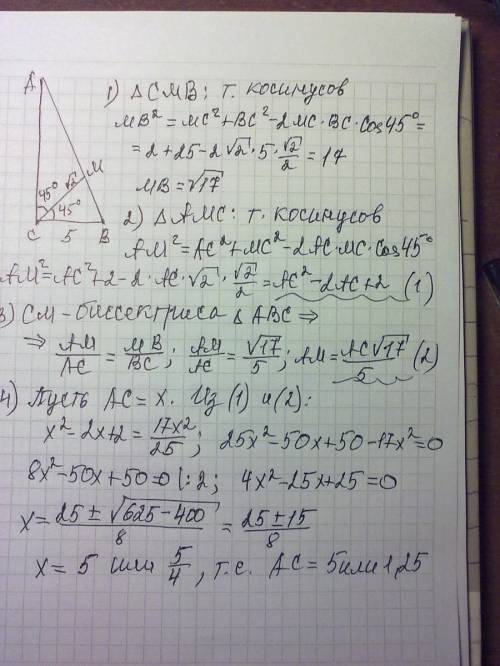 A
1) △ CMB: т. косинусов
MB² = MC² + BC² - 2MC · BC · cos45° =
= 2 + 25 - 2√2 · 5 · √2/2 = 17
MB = √17
M
45° √2
45°
C 5 B
2) △ AMC: т. косинусов
AM² = AC² + MC² - 2AC · MC · cos45°
AM² = AC² + 2 - 2 · AC · √2 · √2/2 = AC² - 2AC + 2 (1)
3) CM - биссектриса △ ABC ⇒
⇒ AM/AC = MB/BC; AM/AC = √17/5; AM = AC√17/5 (2)
4) Пусть AC = x. Из (1) и (2):
x² - 2x + 2 = 17x²/25; 25x² - 50x + 50 - 17x² = 0
8x² - 50x + 50 = 0 |: 2; 4x² - 25x + 25 = 0
x = 25 ± √625 - 400/8 = 25 ± 15/8
x = 5 или 5/4, т.е. AC = 5 или 1,25